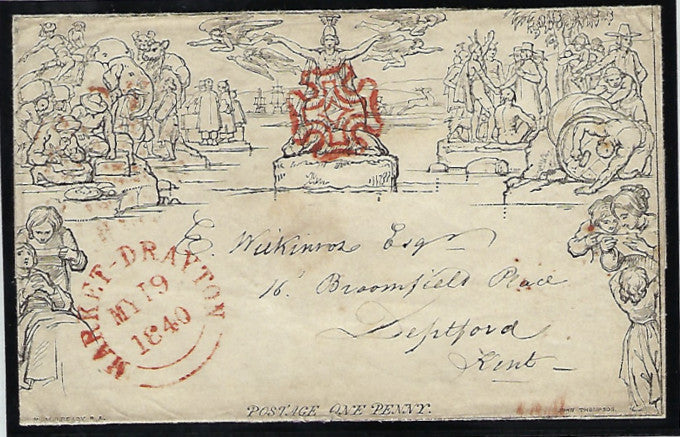 MARKET-DRAYTON
MY 19
1840
E. Wilkinson Esqr
16 Broomfield Place
Deptford
Kent
POSTAGE ONE PENNY.
W. MULREADY. R.A.
JOHN THOMPSON.